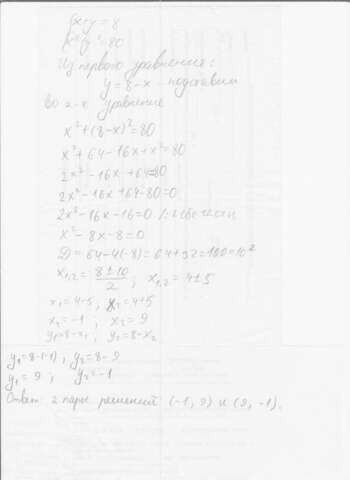 {x+y=8
x²+y²=80
Из первого уравнения:
y=8-x - подставим
во 2-х уравнение
x²+(8-x)²=80
x²+64-16x+x²=80
2x²-16x+64=80
2x²-16x+64-80=0
2x²-16x-16=0
x²-8x-8=0
D=64-4(-8)=64+32=100=10²
x₁,₂=8±10/2; x₁,₂=4±5
x₁=4-5, x₂=4+5
x₁=-1, x₂=9
y₁=8-x₁; y₂=8-x₂
y₁=8-(-1); y₂=8-9
y₁=9; y₂=-1
Ответ: 2 пары решений (-1, 9) и (9, -1).